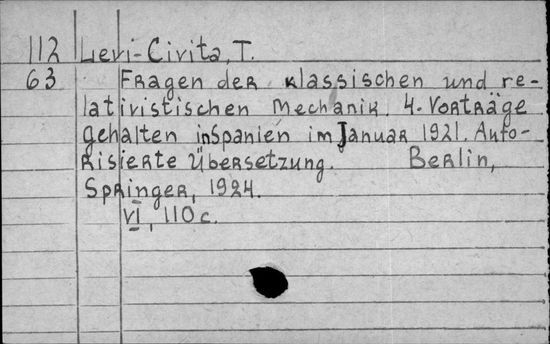 112 Levi-Civita, T.
63 Fragen der klassischen und re-
lativistischen Mechanik. 4. Vorträge
gehalten inSpanien im Januar 1921. Auto-
risierte Übersetzung. Berlin,
Springer, 1924.
VI, 110 c.